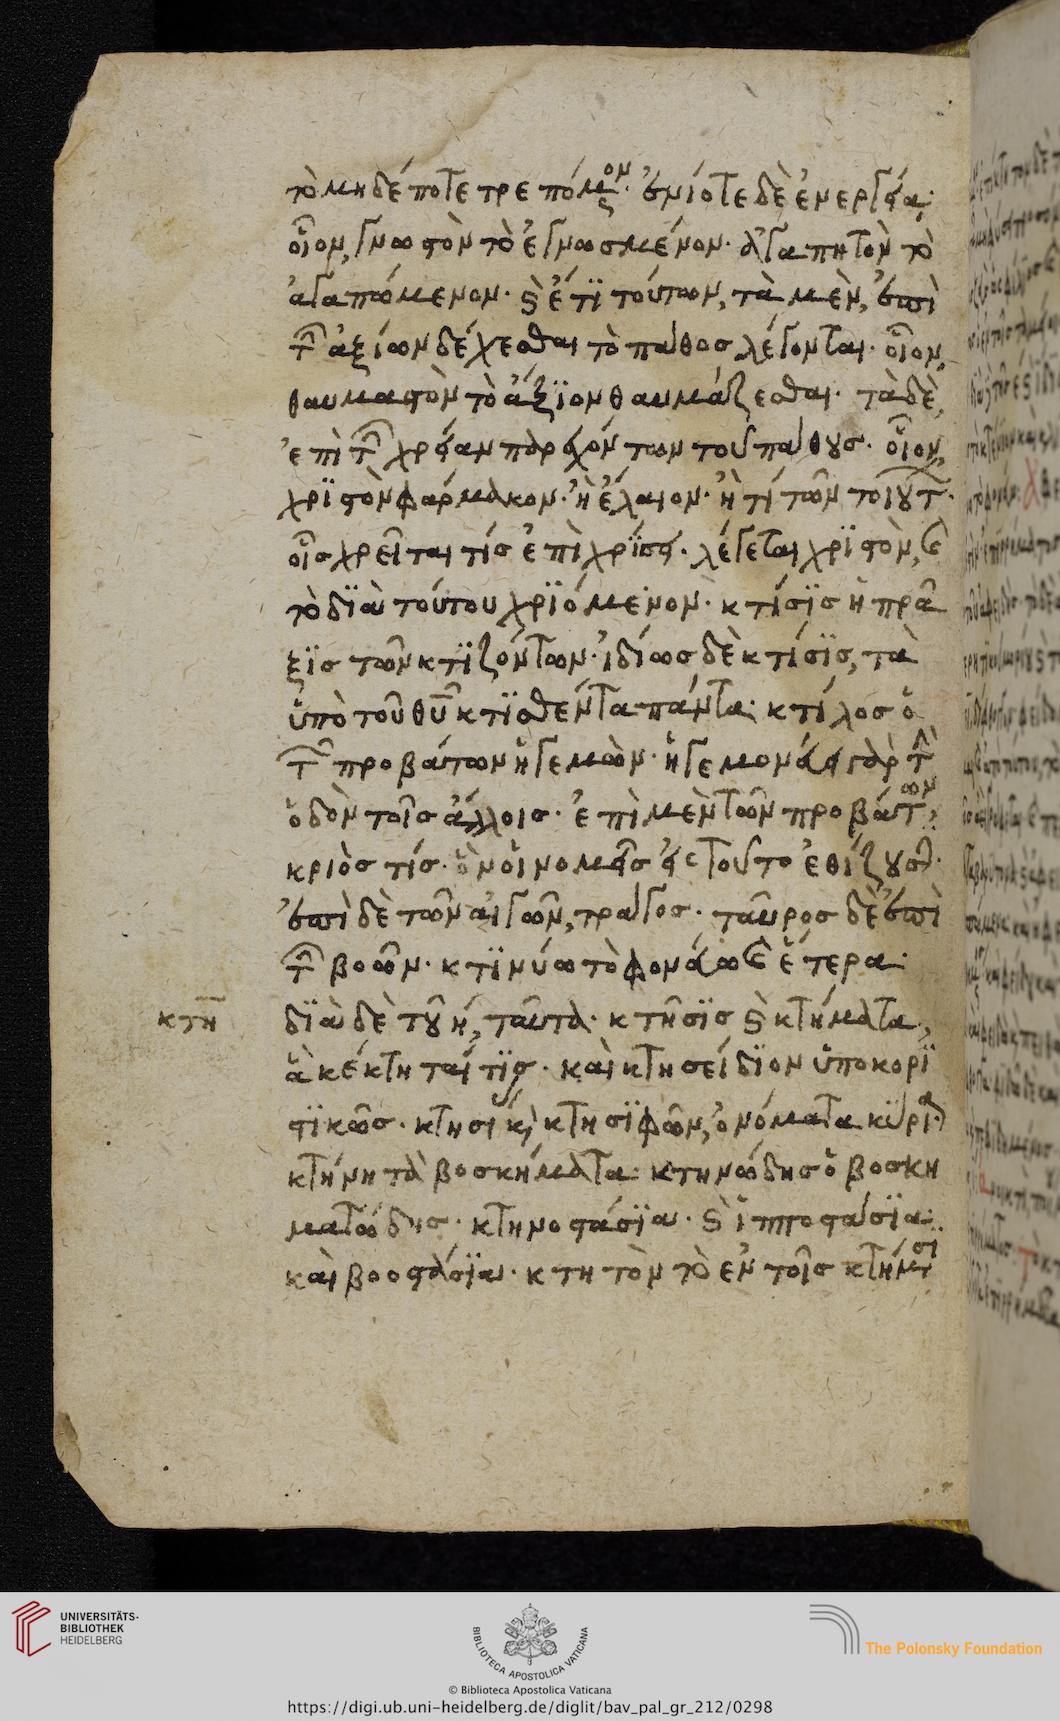 τὸ μηδέποτε τρεπόμενον· ἐνίοτε δὲ ἐνέργειαν·
οἷον, γνωστὸν τὸ ἐγνωσμένον· ἀγαπητὸν τὸ
ἀγαπώμενον· καὶ ἔτϊ τούτων, τὰ μὲν, ἐπὶ
τῶν ἀξίων δέχεσθαι τὸ πάθος λέγονται· οἷον,
θαυμαστὸν τὸ ἄξϊον θαυμάζεσθαι· τὰ δὲ,
ἐπὶ τὴν χρείαν παρεχόντων τοῦ πάθους· οἷον,
χρϊστὸν φάρμακον· ἢ ἔλαιον· ἢ τί τῶν τοιούτων·
οἷς χρεῖται τίς ἐπὶ χρίσει· λέγεται χρϊστὸν, καὶ
τὸ δϊὰ τούτου χρϊόμενον· κτίσϊς ἡ πρᾶ
ξϊς τῶν κτϊζόντων· ἰδίως δὲ κτίσϊς, τὰ
ὑπὸ τοῦ θυ κτϊσθέντα πάντα· κτίλος ὁ
τῶν προβάτων ἡγεμὼν· ἡγεμονεύει γὰρ τὴν
ὁδὸν τοῖς ἄλλοις· ἐπὶ μὲν τῶν προβάτων,
κριὸς τίς· ὃν οἱ νομεῖς εἰς τοῦτο ἐθίζουσιν·
ἐπὶ δὲ τῶν αἰγῶν, τράγος· ταῦρος δὲ ἐπὶ
τῶν βοῶν· κτϊννύω τὸ φονεύω καὶ ἕτερα·
κτη
δϊὰ δὲ τοῦ η, ταῦτα· κτῆσϊς καὶ κτήματα,
ἃ κέκτηταί τϊς· καὶ κτησείδϊον ὑποκορϊ
στϊκῶς· κτησίας καὶ κτησϊφῶν, ὀνόματα κύρια·
κτήνη τὰ βοσκήματα· κτηνώδης ὁ βοσκη
ματώδης· κτηνοστάσϊα· καὶ ἱπποστάσϊα·
καὶ βοοστάσϊα· κτητὸν τὸ ἐν τοῖς κτήμασϊ
UNIVERSITÄTS-
BIBLIOTHEK
HEIDELBERG
BIBLIOTECA APOSTOLICA VATICANA
The Polonsky Foundation
© Biblioteca Apostolica Vaticana
https://digi.ub.uni-heidelberg.de/diglit/bav_pal_gr_212/0298